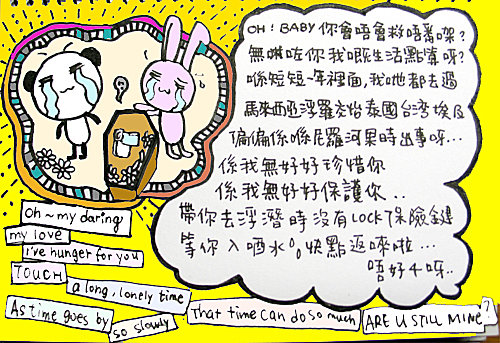 OH! BABY 你會唔會救唔番㗎?
無咗你我嘅生活點算呀?
喺短短一年裡面,我哋都去過
馬來西亞浮羅交怡泰國台湾埃及
偏偏係喺尼羅河果時出事呀...
係我無好好珍惜你
係我無好好保護你..
帶你去浮潛時沒有LOCK保險鏈
等你入哂水。快點返嚟啦...
唔好4呀..
oh~my daring
my love
i've hunger for you
TOUCH
a long, lonely time
As time goes by
so slowly
That time can do so much
ARE U STILL MINE?